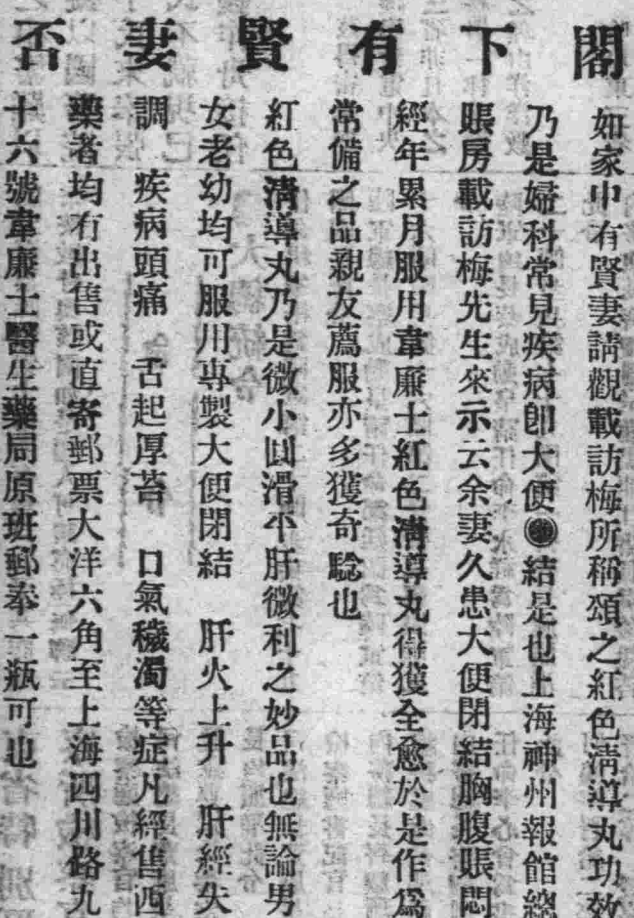 閣下有賢妻否
如家中有賢妻請觀載訪梅所稱頌之紅色淸導丸功效
乃是婦科常見疾病卽大便結是也上海神州報館總
賬房載訪梅先生來示云余妻久患大便閉結胸腹賬悶
經年累月服用韋廉士紅色淸導丸得獲全愈於是作爲
常備之品親友薦服亦多獲奇騐也
紅色淸導丸乃是微小圓滑平肝微利之妙品也無論男
女老幼均可服用專製大便閉結 肝火上升 肝經失
調 疾病頭痛 舌起厚苔 口氣穢濁等症凡經售西
藥者均有出售或直寄郵票大洋六角至上海四川路九
十六號韋廉士醫生藥局原班郵奉一瓶可也